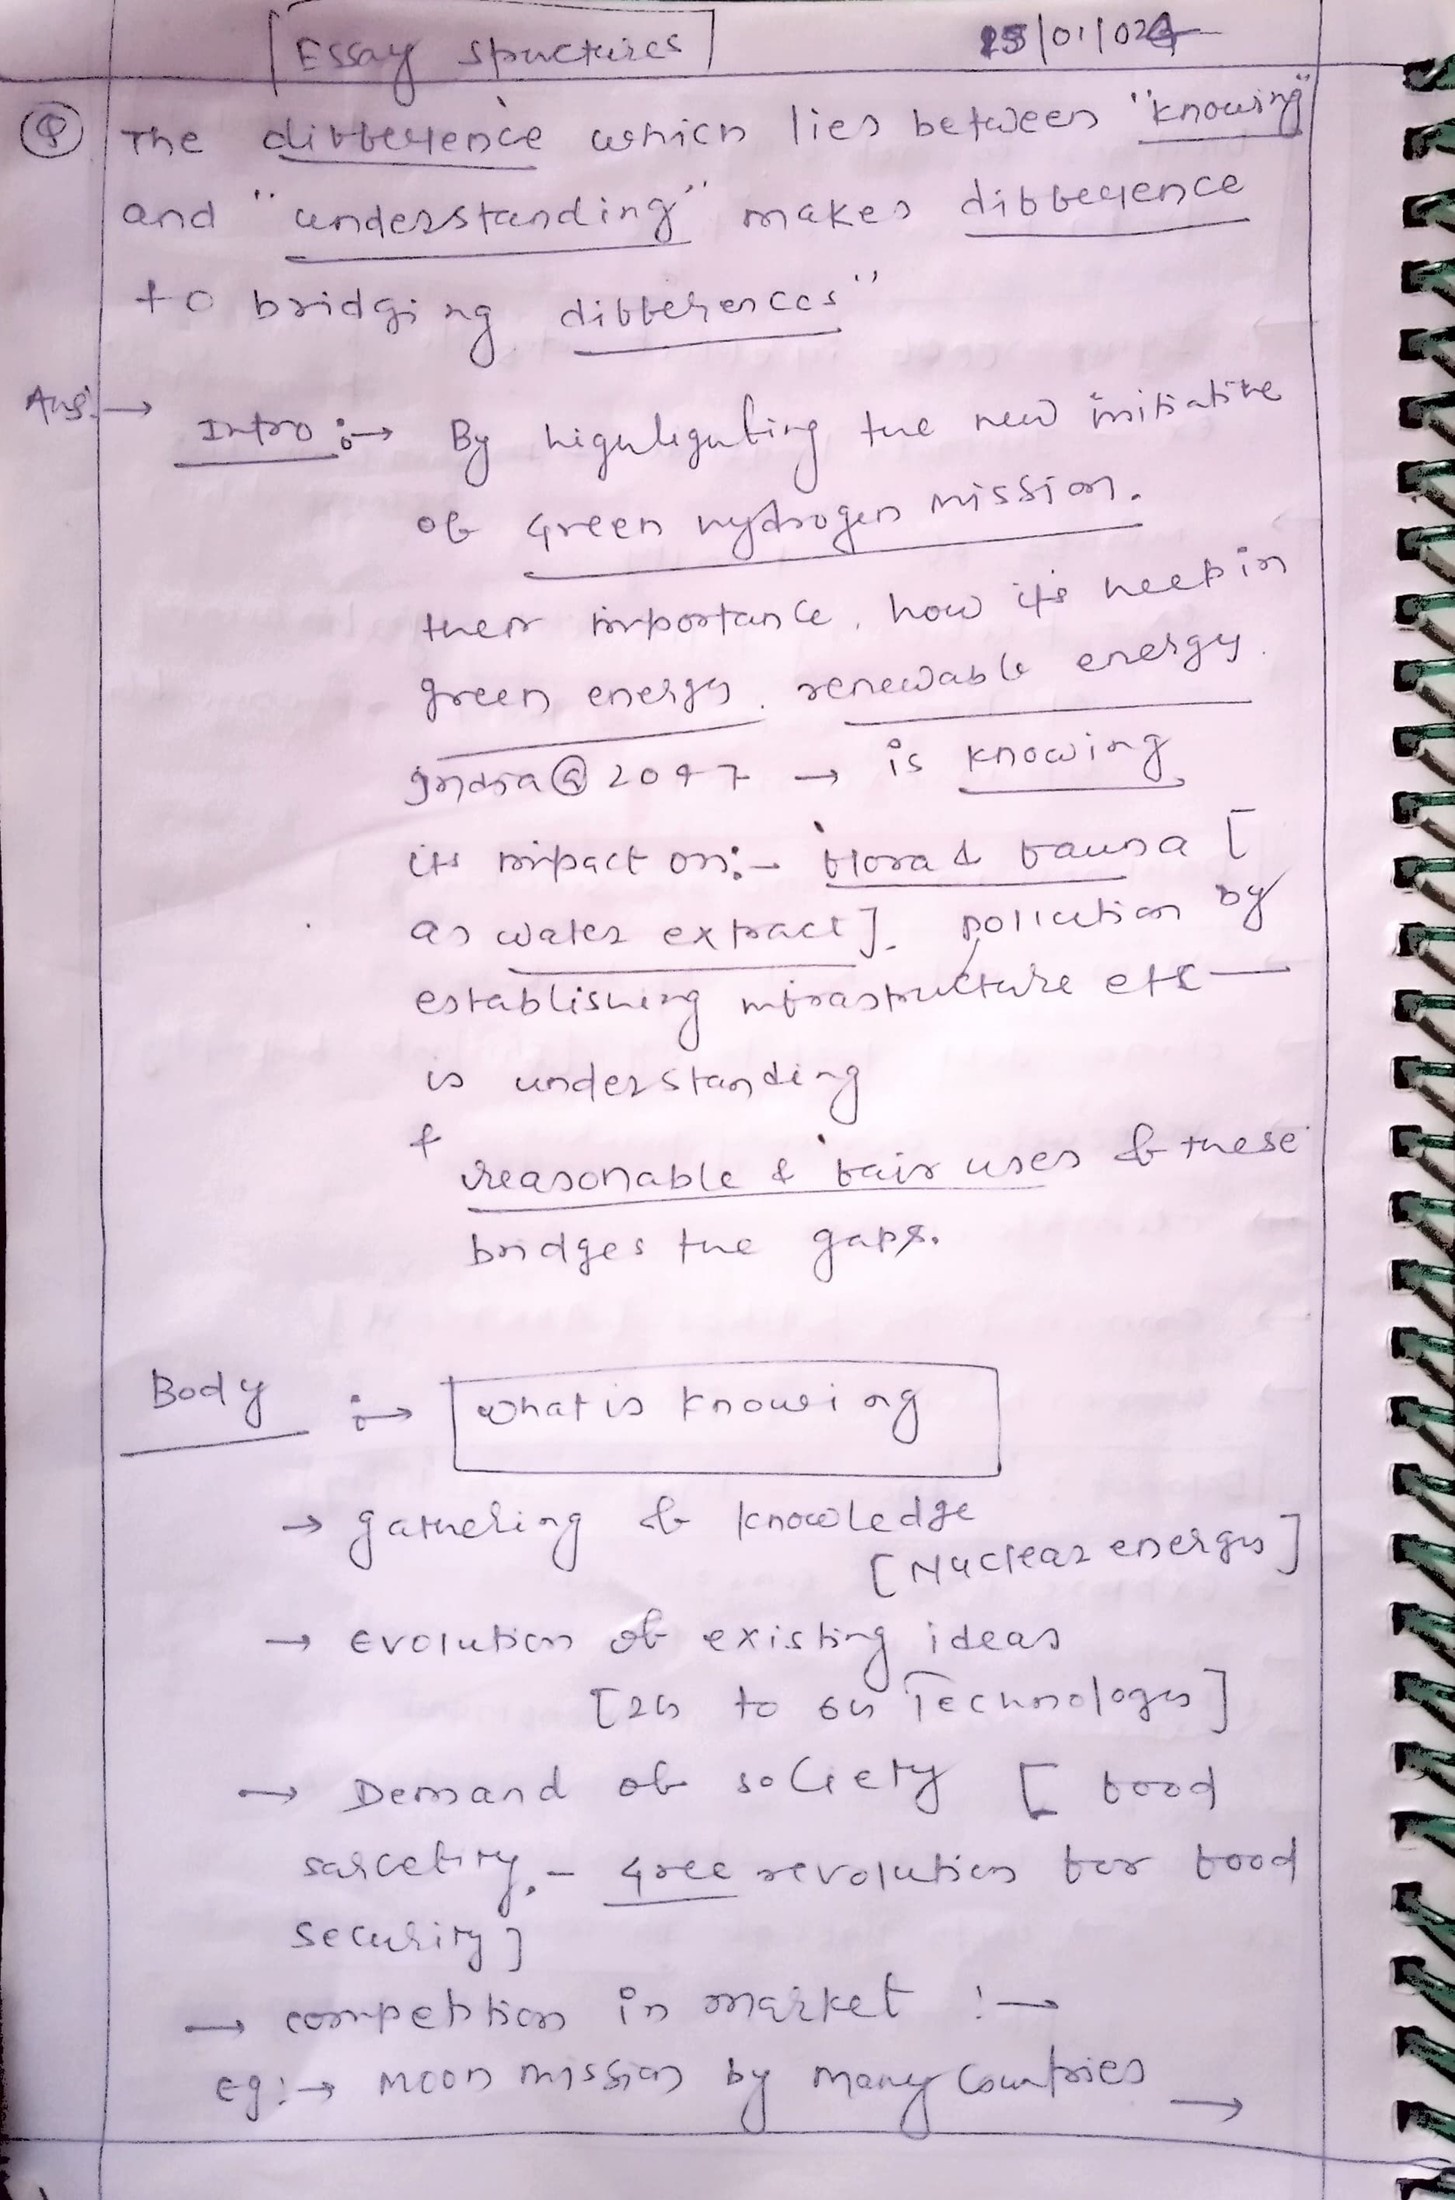 Essay structures
15/01/024
Q The difference which lies between "knowing"
and "understanding" makes difference
to bridging differences"
Ans. → Intro :→ By highlighting the new initiative
of Green hydrogen mission.
their importance, how its help in
green energy, renewable energy.
India@2047 → is knowing
its impact on:- flora & fauna [
as water extract]. pollution by
establishing infrastructure etc —
is understanding
& reasonable & fair uses of these
bridges the gaps.
Body :→ What is Knowing
→ gathering of knowledge
[Nuclear energy]
→ Evolution of existing ideas
[2G to 6G Technology]
→ Demand of society [ food
scarcity, - Gree revolution for food
security]
→ competition in market :→
eg:→ Moon mission by many Countries →